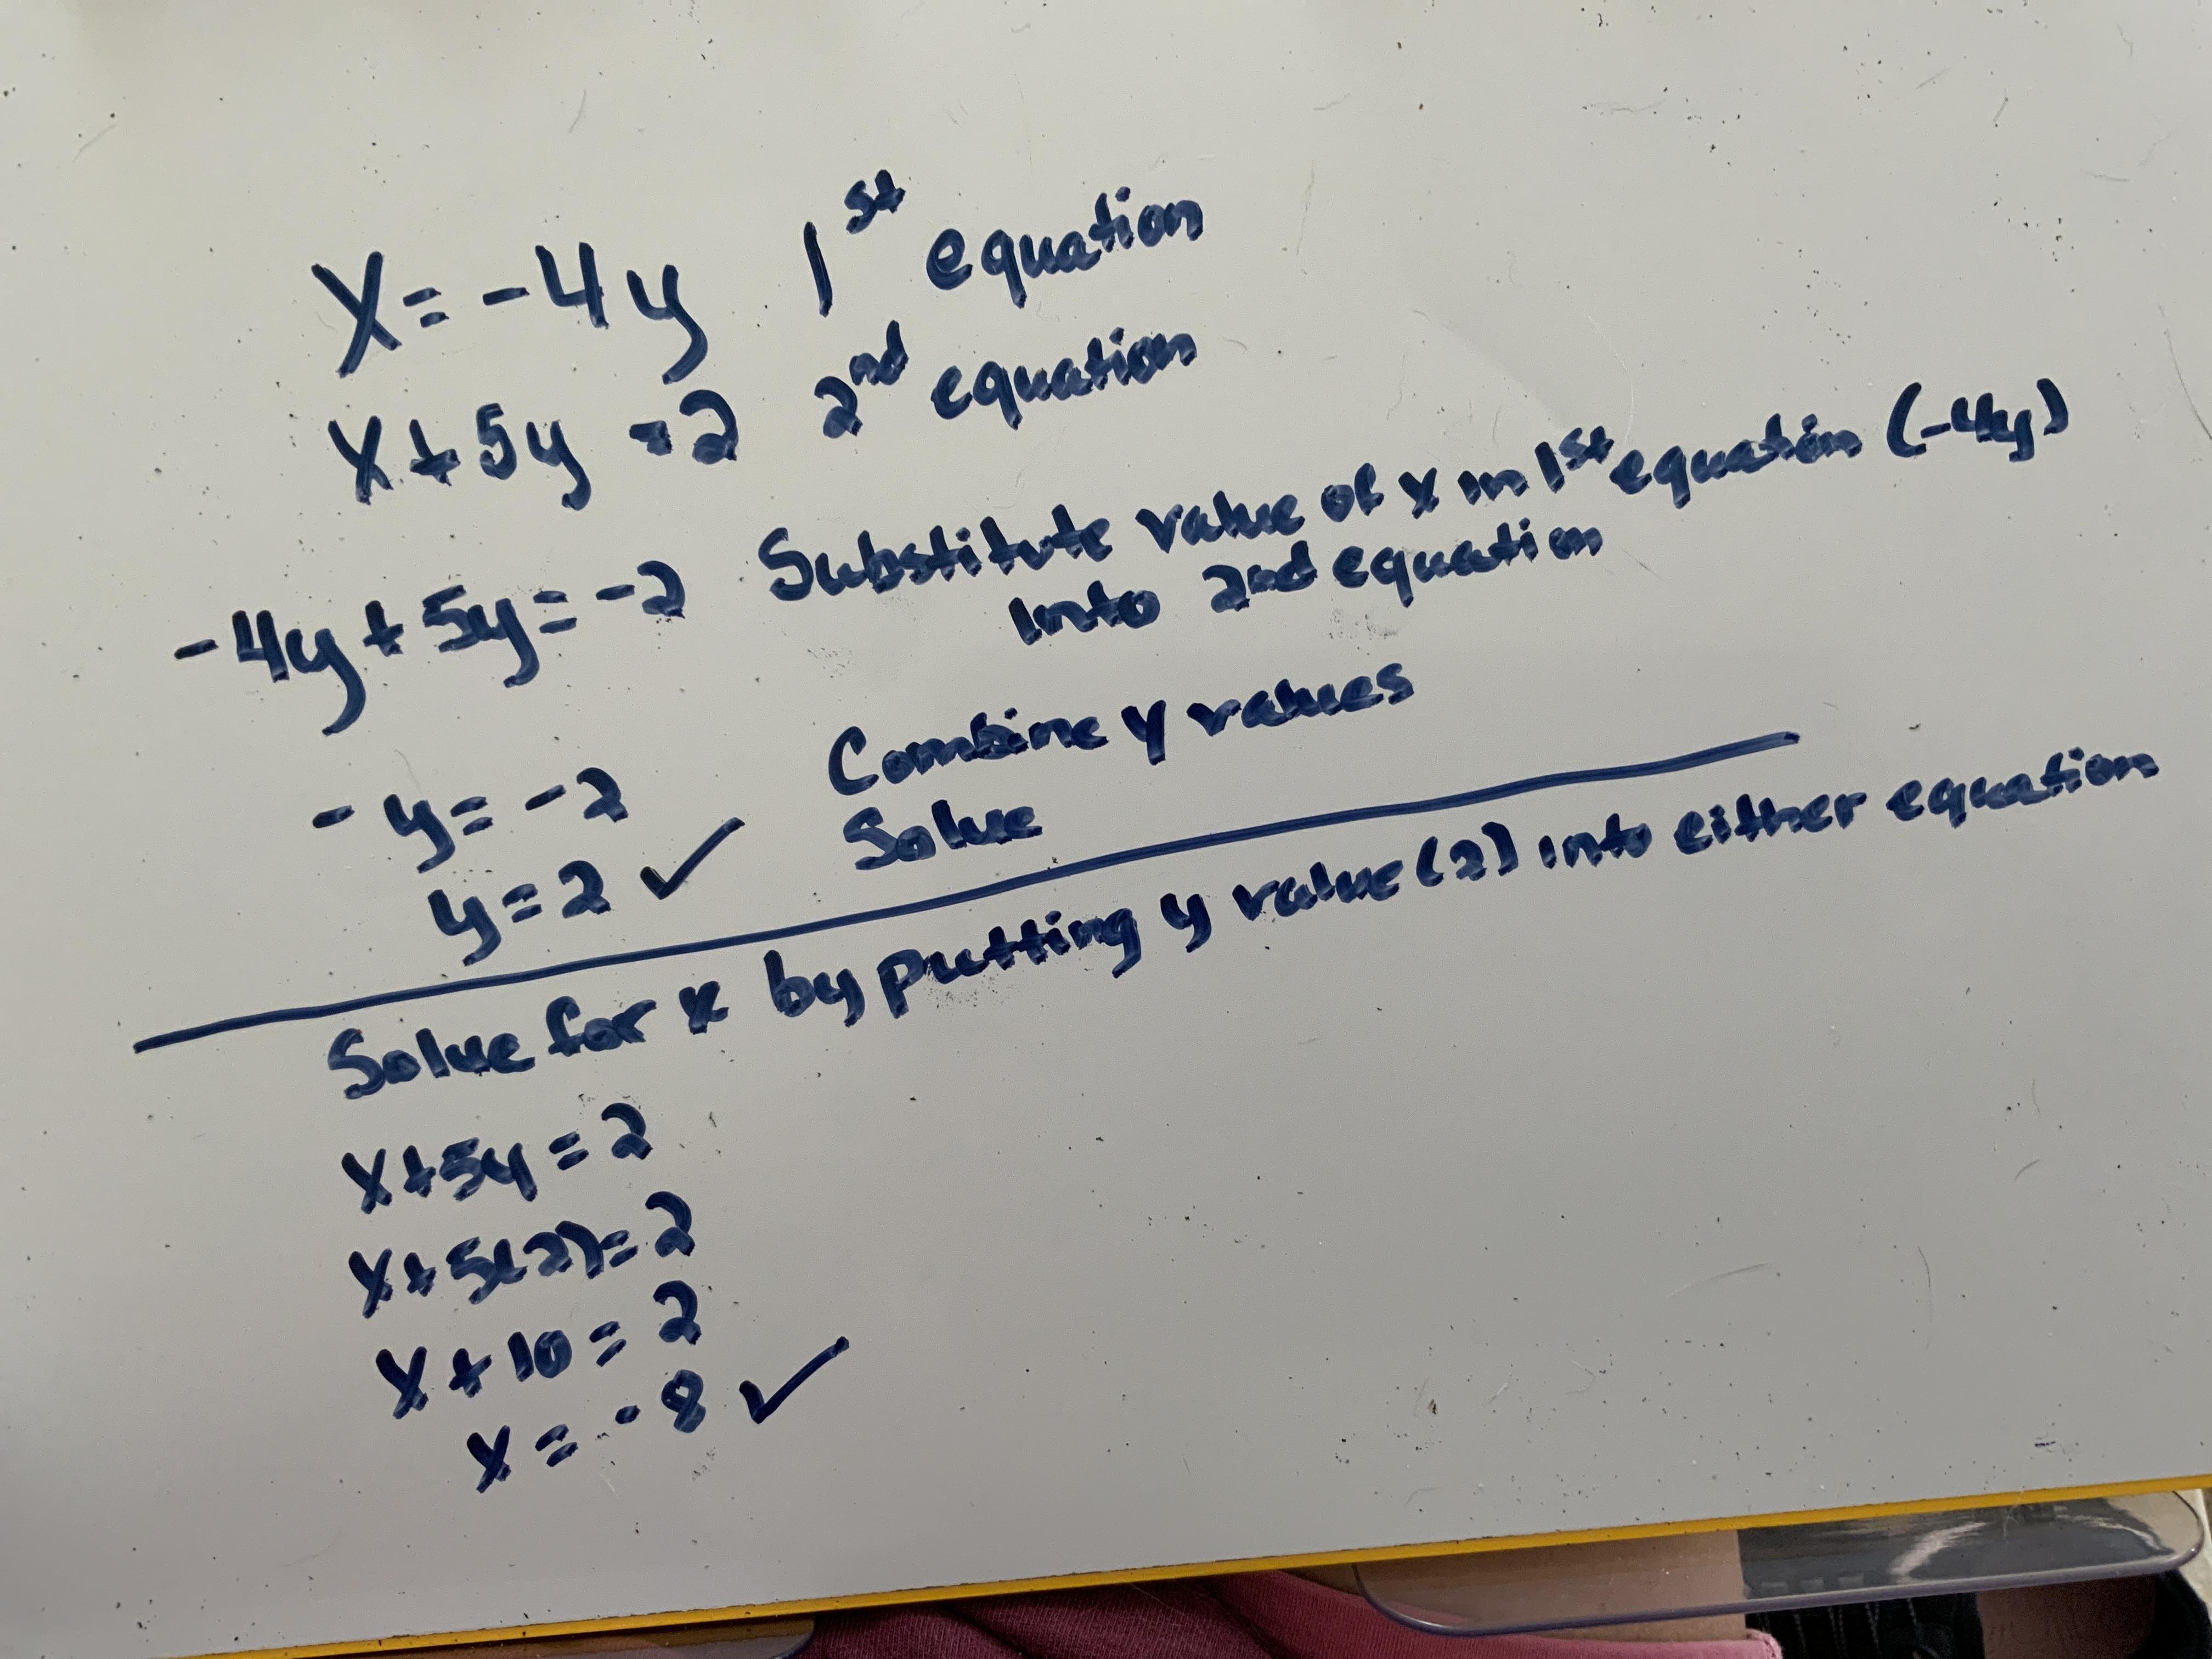 X = -4y 1st equation
x + 5y = 2 2nd equation
-4y + 5y = -2 Substitute value of x in 1st equation (-4y)
into 2nd equation
- y = -2 Combine y values
y = 2 ✓ Solve
Solve for x by putting y value (2) into either equation
x + 5y = 2
x + 5(2) = 2
x + 10 = 2
x = -8 ✓